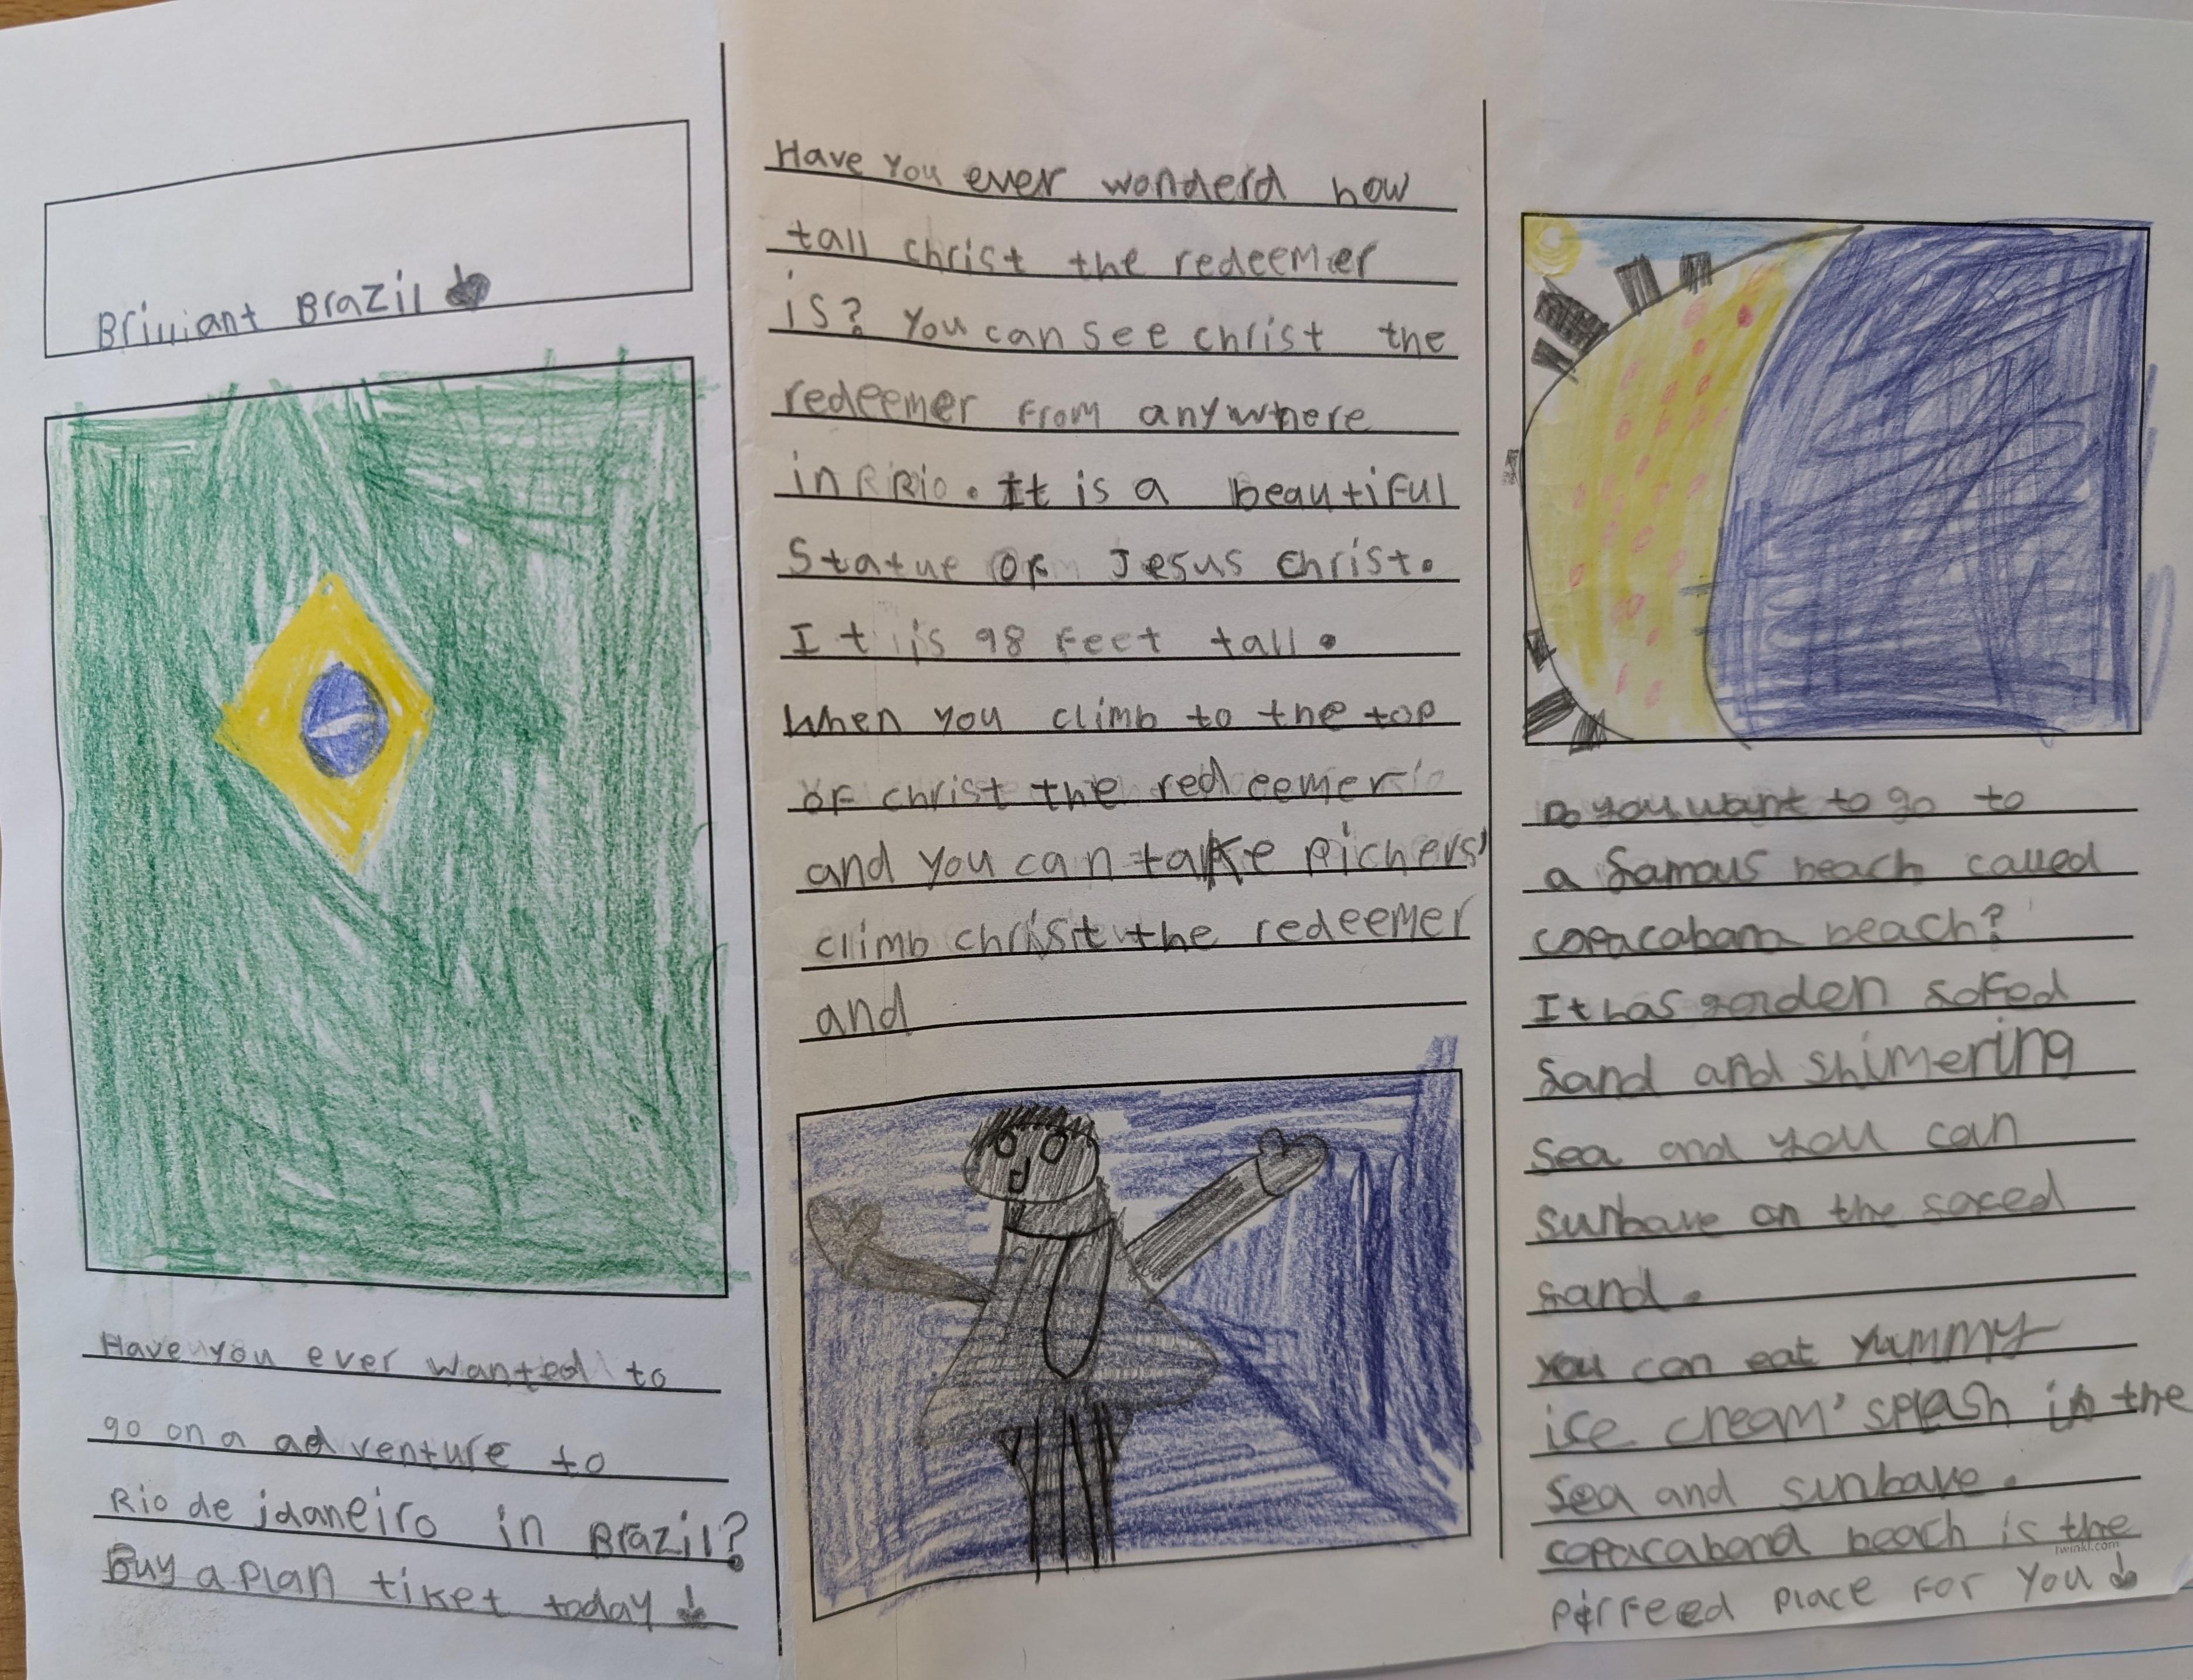 Brilliant Brazil!
Have you ever wanted to
go on a adventure to
Rio de jdaneiro in Brazil?
Buy a plan tiket today!
Have you ever wonderd how
tall christ the redeemer
is? You can see christ the
redeemer from anywhere
in R Rio. It is a beautiful
Statue of Jesus christ.
It is 98 feet tall.
When you climb to the top
of christ the redeemer
and you can take pichers'
climb christ the redeemer
and
Do you want to go to
a famous beach called
copacabana beach?
It has golden sofed
sand and shimering
sea and you can
sunbave on the soced
sand.
you can eat yummy
ice cream' splash in the
sea and sunbave.
copacabana beach is the
twinkl.com
perfeed place for you!